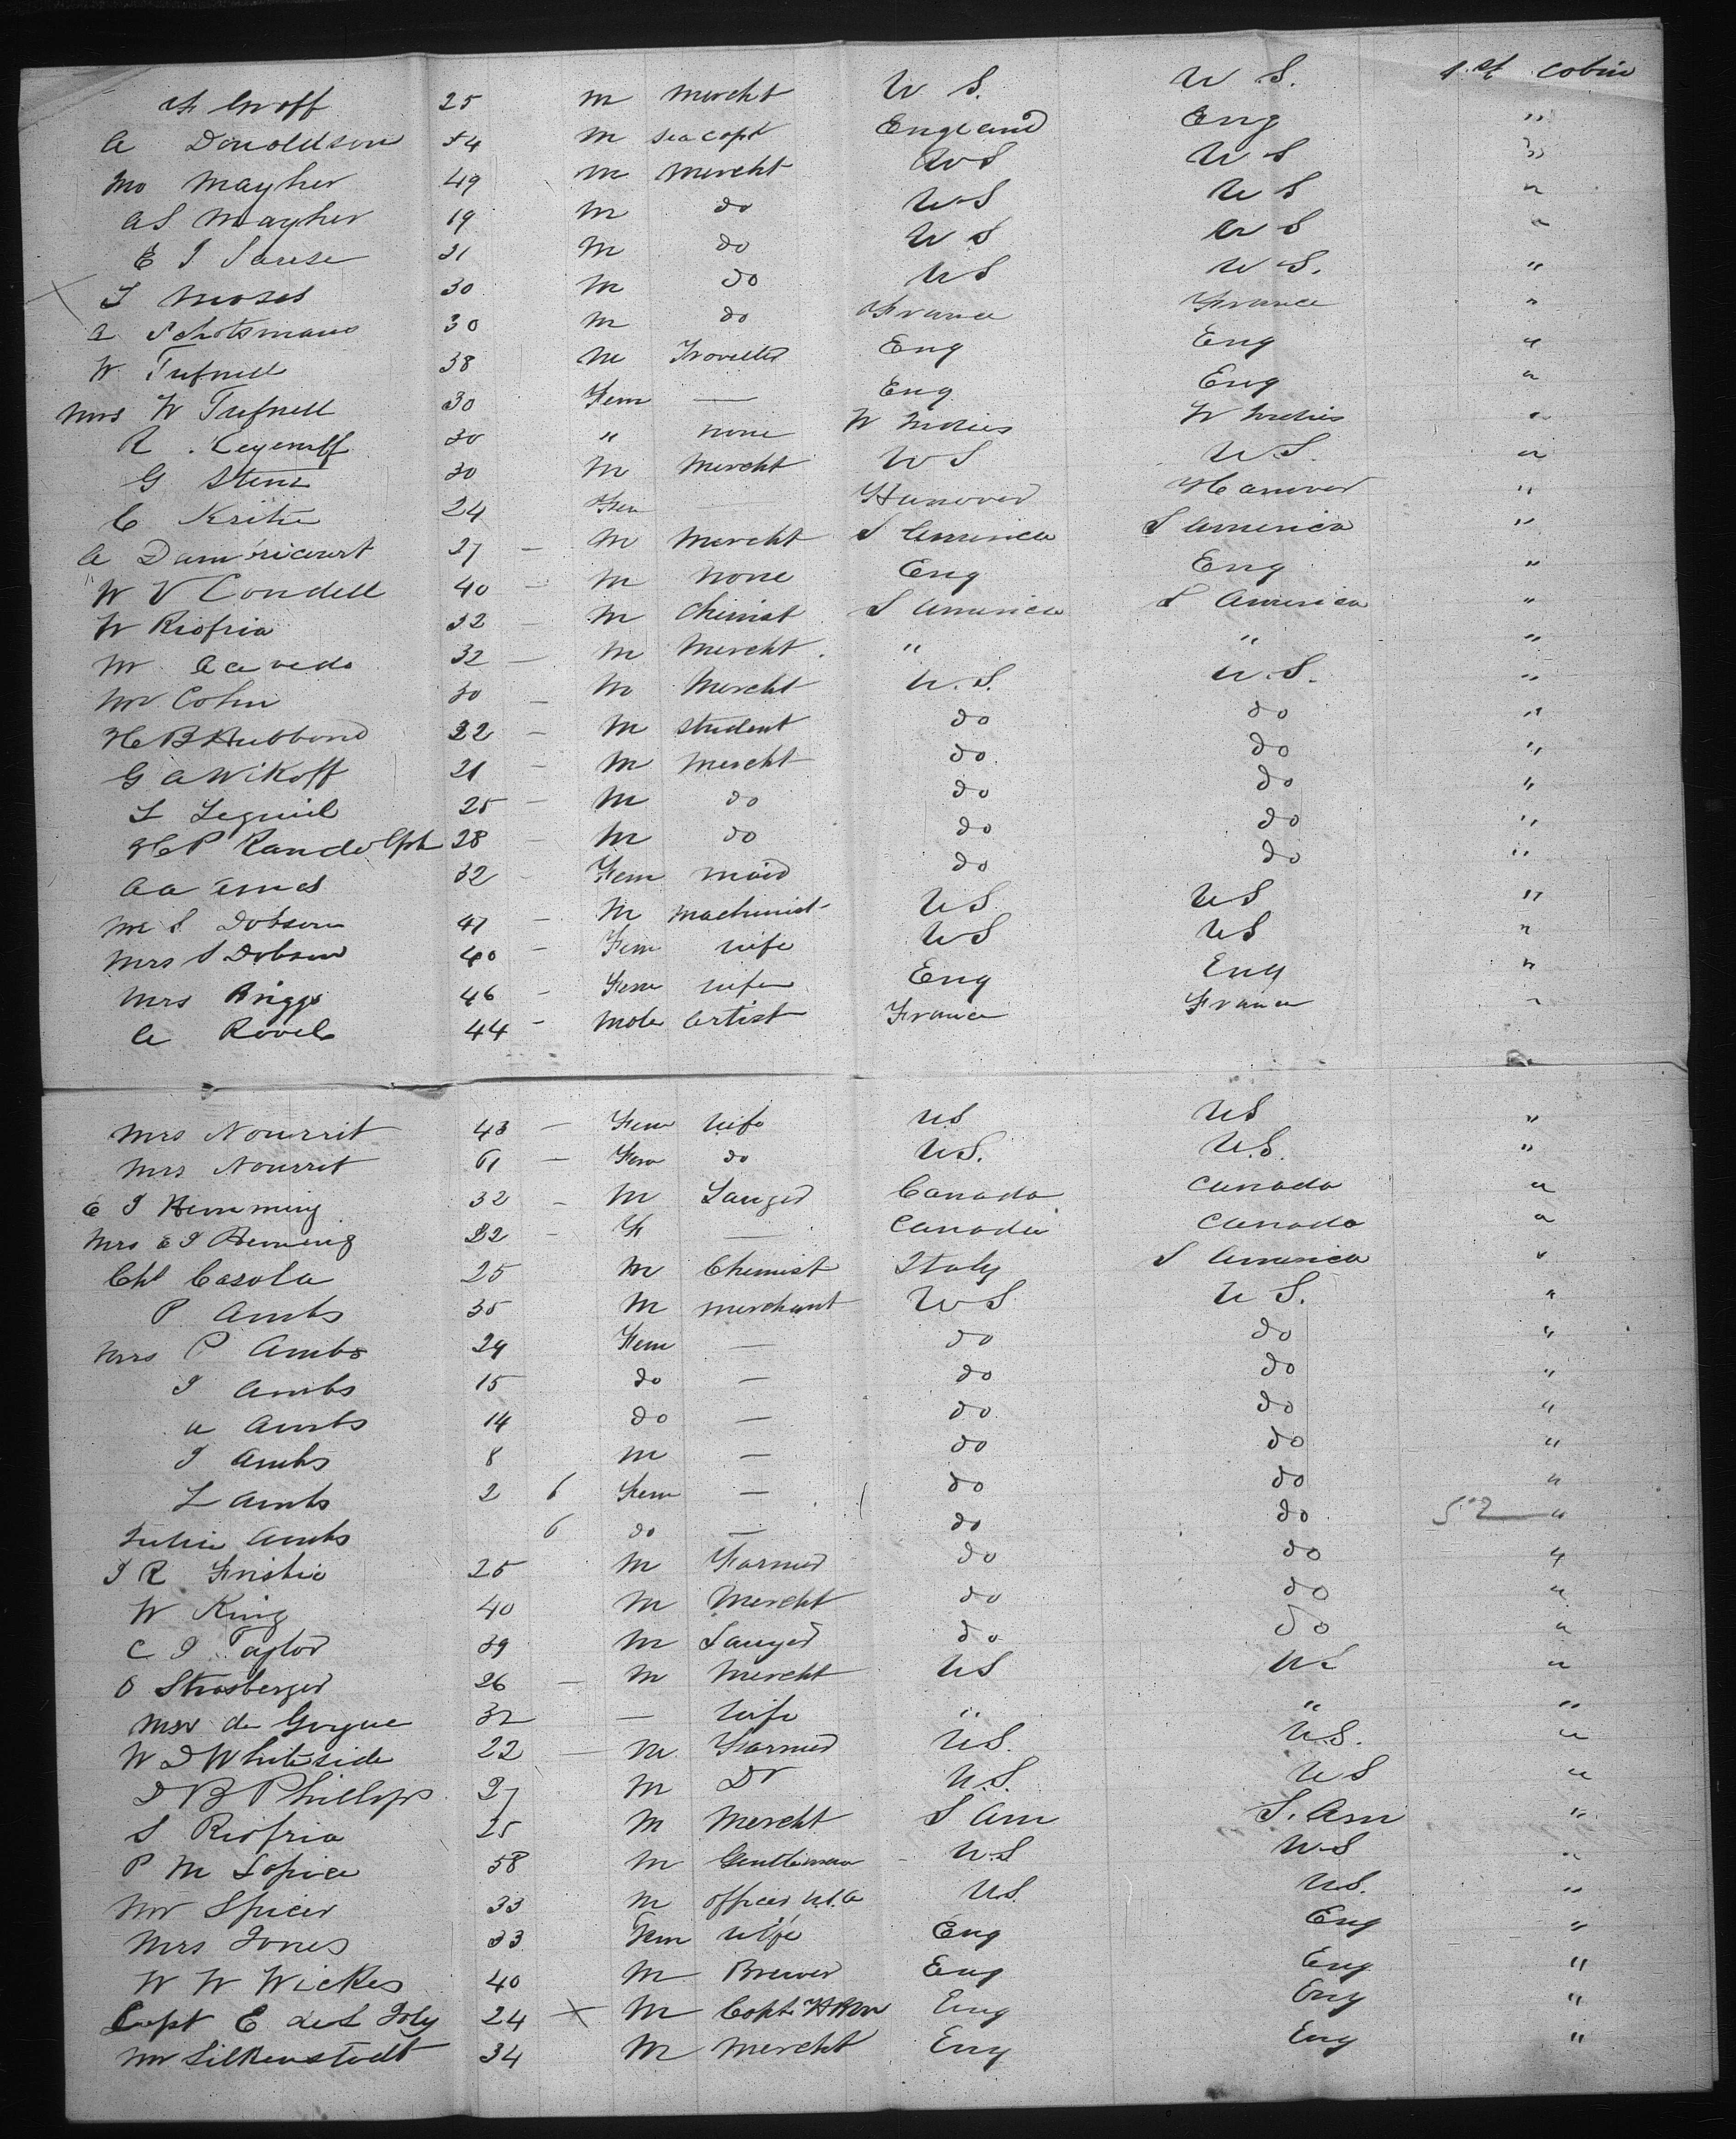 Groff 25 m mercht U S. U S. 1st Cabin
A Donoldson 54 m sea capt England Eng "
Mr Mayher 49 m mercht U S U S "
A S Mayher 19 m do U S U S "
E I 21 m do U S U S "
I Moses 30 m do U S U S. "
A Schotsmans 30 m do France France "
W Tufnell 38 m Traveller Eng Eng "
Mrs W Tufnell 30 Fem — Eng Eng "
R. 30 " none W Indies W Indies "
G 30 m mercht U S U S. "
C 24 Fem Hanover Hanover "
A Damericourt 27 — m mercht S America S America "
W V Condell 40 — m none Eng Eng "
W Riofria 32 — m chemist S America S America "
M Acevedo 32 — m mercht. " " "
Mr Cohn 30 — m mercht U.S. U.S. "
H B Hubbard 22 — m student do do "
G A Wikoff 21 — m mercht do do "
L 25 — m do do do "
H P Randolph 28 — m do do do "
A A Ames 32 — Fem maid do do "
Mr S Dobson 41 — m machinist U S U S "
Mrs S Dobson 40 — Fem wife U S U S "
Mrs Briggs 46 — Fem wife Eng Eng "
A 44 — male artist France France "
Mrs Nourrit 43 — Fem wife U S U S "
Mrs Nourrit 61 — Fem do U S. U.S. "
E I Hemming 32 — m Lawyer Canada Canada "
Mrs E I Heming 22 — F — Canada Canada "
Casola 25 m Chemist Italy S America "
P Ambs 35 m merchant U S U S. "
Mrs P Ambs 29 Fem — do do "
I Ambs 15 do — do do "
A Ambs 14 do — do do "
I Ambs 8 m — do do "
L Ambs 2 6 Fem — do do "
Julia Ambs 6 do — do do 52 "
I R Frisbie 25 m Farmer do do "
W King 40 m Mercht do do "
C I Taylor 39 m Lawyer do do "
O Strasberger 26 — m Mercht U S U S "
de 32 — wife " " "
W D Whiteside 22 — m Farmer U S. U.S. "
D B Phillips 27 m Dr U.S. U S "
S Riofria 25 m Mercht S Am S. Am "
P M 58 m Gentleman U.S U.S "
Mr Spicer 33 m officer U.S.A U.S. U.S. "
Mrs Jones 33 Fem wife Eng Eng "
W W Wickes 40 m Brewer Eng Eng "
Capt E 24 × m Capt Eng Eng "
Mr Silkenstadt 34 m mercht Eng Eng "